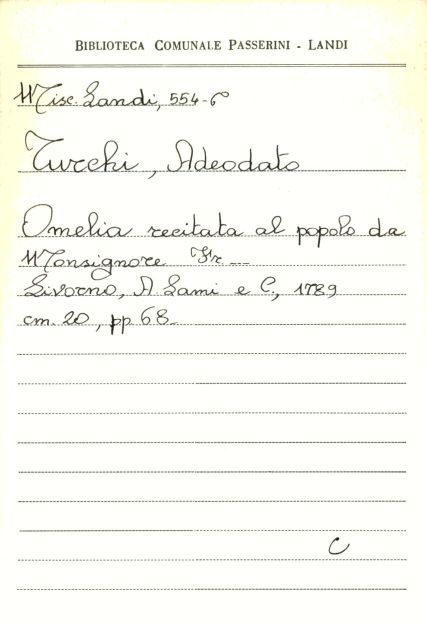 BIBLIOTECA COMUNALE PASSERINI - LANDI
Misc. Landi, 554-6
Turchi, Adeodato
Omelia recitata al popolo da
Monsignore Fr. ...
Livorno, A. Lami e C., 1789
cm. 20, pp. 68.
C